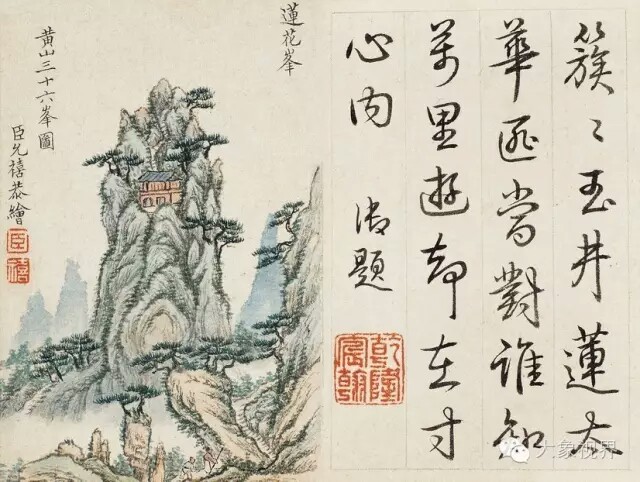 簇〻玉井蓮太
華當對誰知
萬里遊却在寸
心内 御題
乾隆宸翰
蓮花峯
黄山三十六峯圖
臣允禧恭繪
臣
禧
大象视界